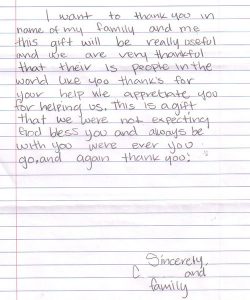 I want to thank you in
name of my family and me
this gift will be really useful
and we are very thankful
that their is people in the
world like you thank's for
your help we appretiate you
for helping us. This is a gift
that we were not expecting
God bless you and always be
with you were ever you
go, and again thank you!
Sincerely,
C and
family